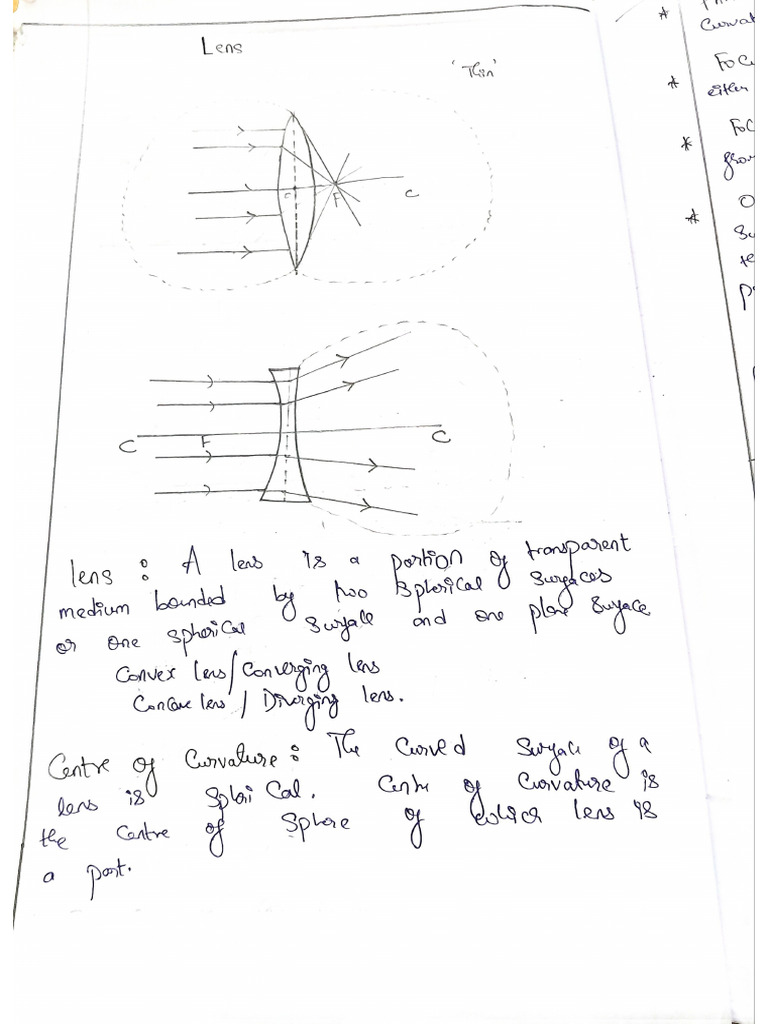 Lens
'Thin'
C
F
C
C
F
C
lens : A lens is a portion of transparent
medium bounded by two spherical surfaces
or one spherical surface and one plane surface
Convex lens/Converging lens
Concave lens / Diverging lens.
Centre of Curvature : The Curved Surface of a
lens is Spherical. Centre of Curvature is
the Centre of Sphere of which lens is
a part.
*
Curvat
*
Focu
either
*
Foc
from
*
O
Su
te